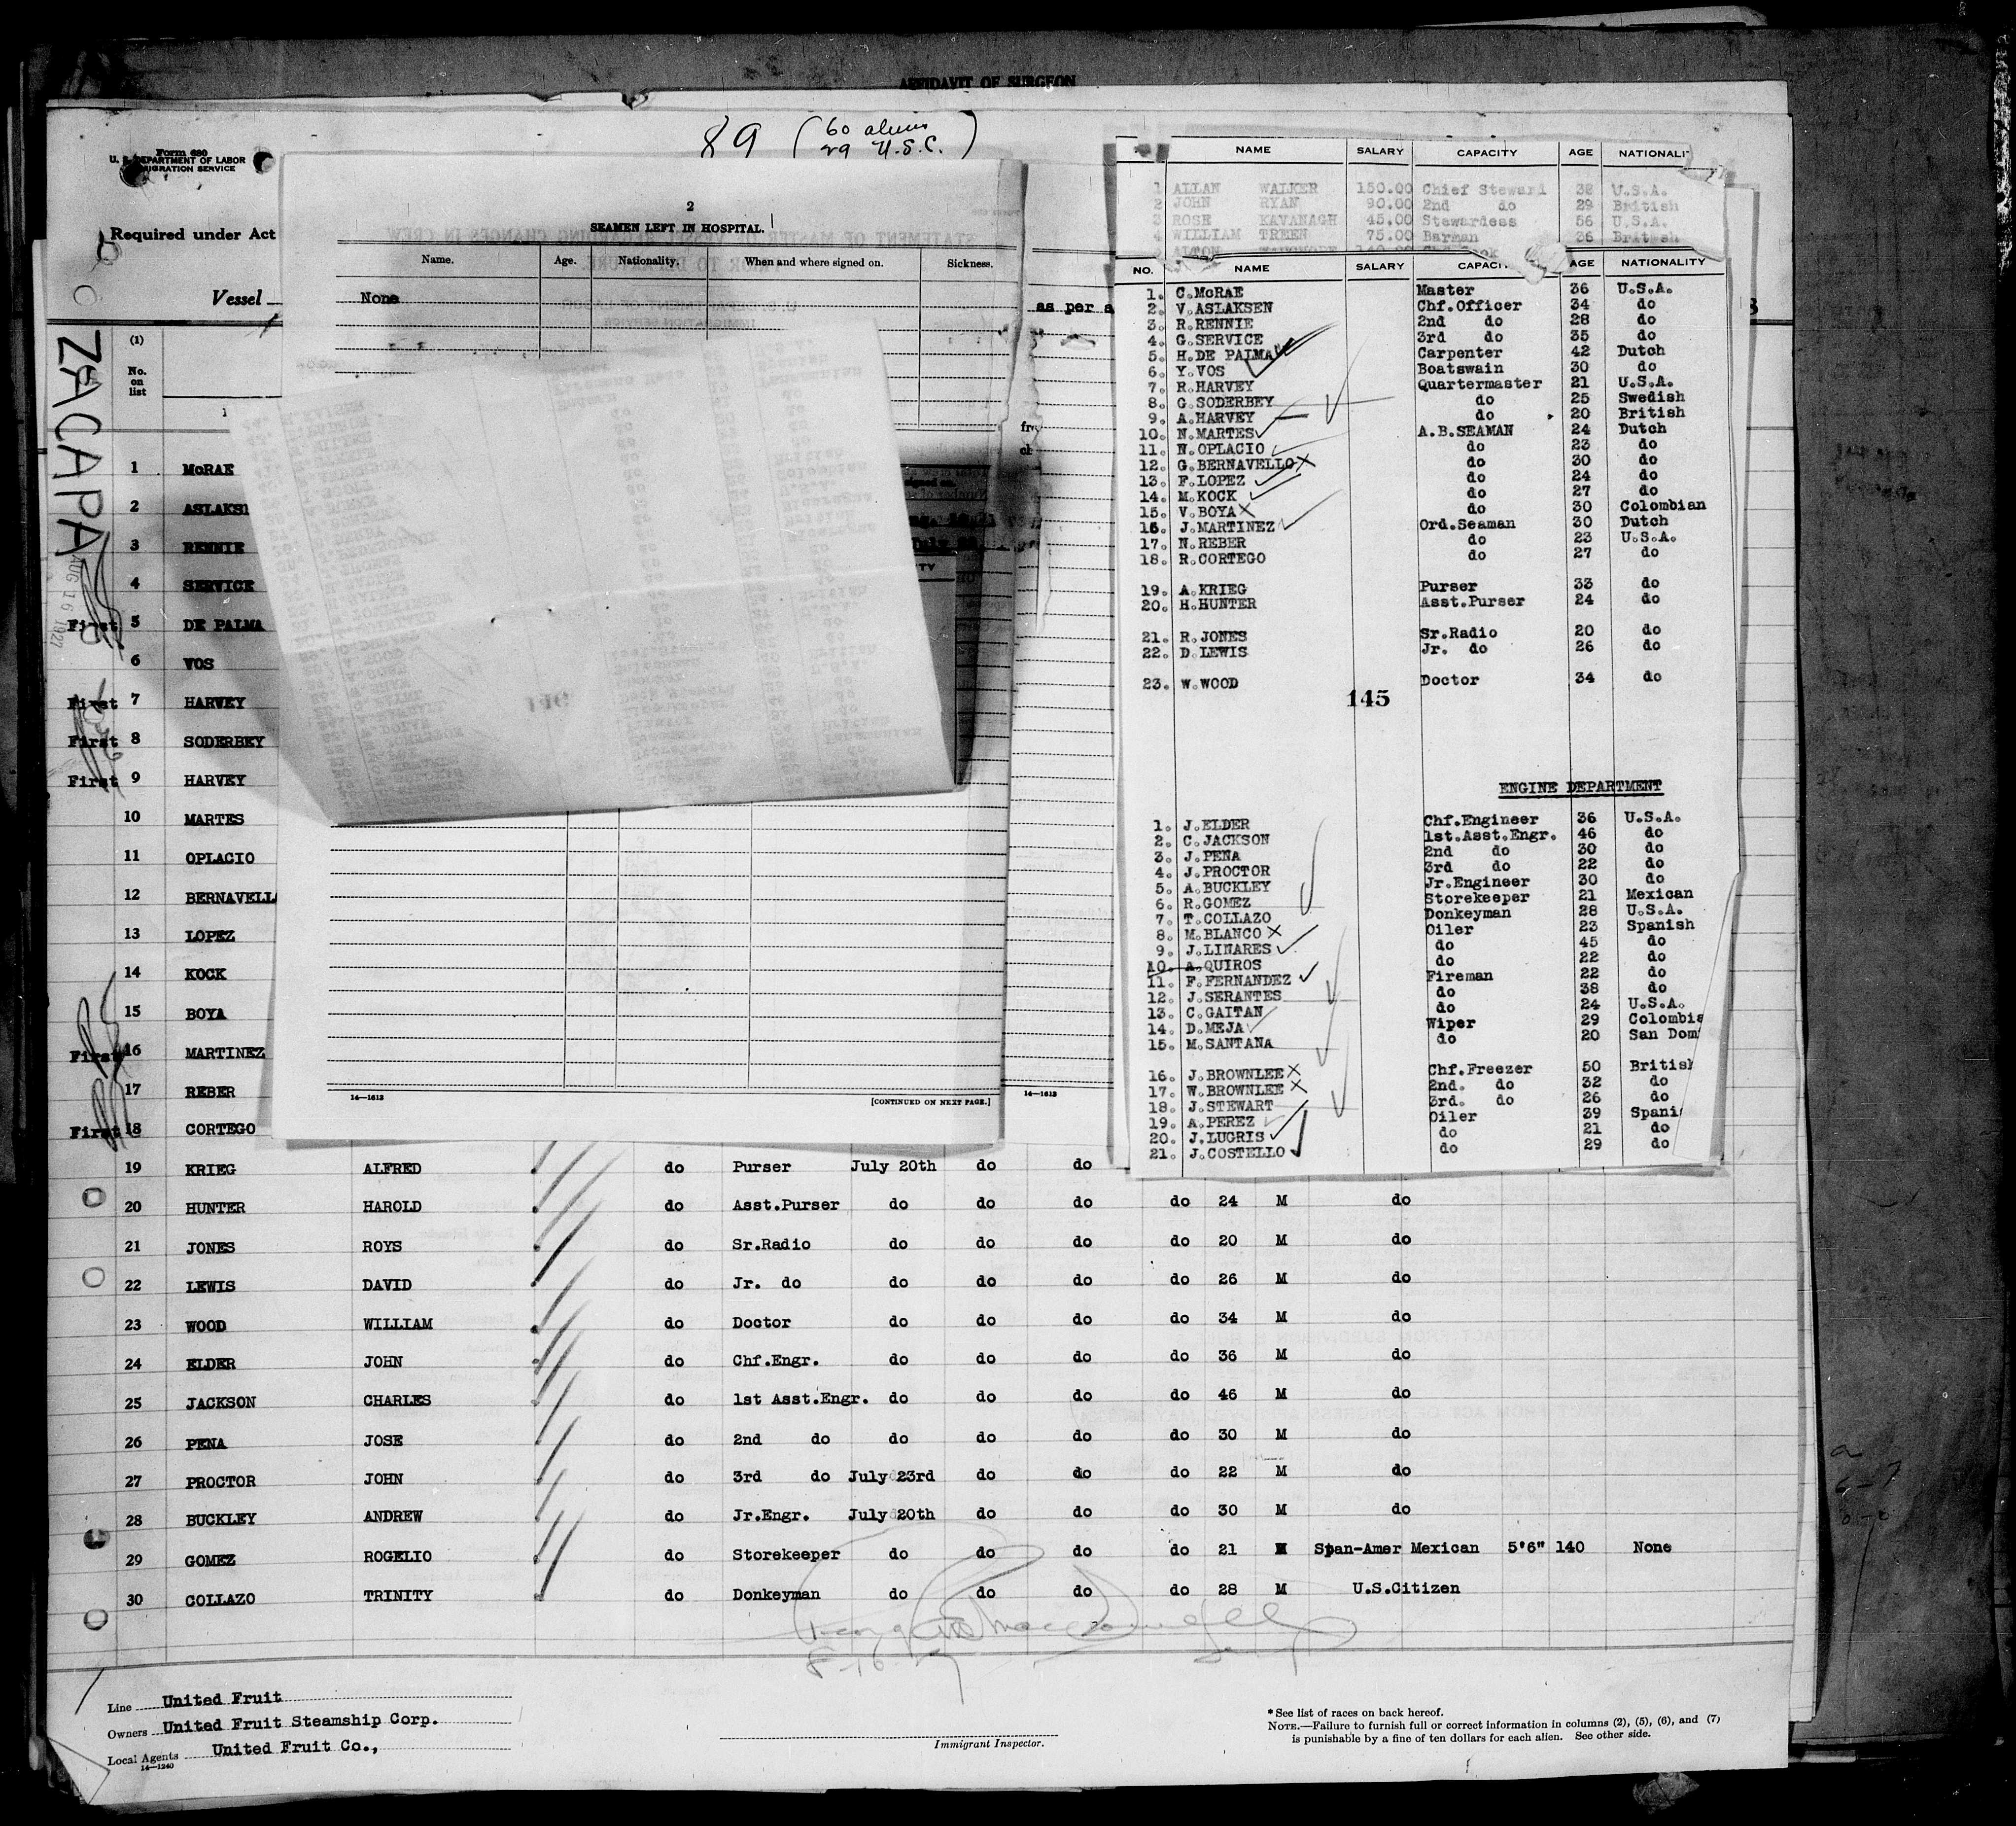 AFFIDAVIT OF SURGEON
89 (60 aliens
29 U.S.C.)
Form 680
U. S. DEPARTMENT OF LABOR
IMMIGRATION SERVICE
Required under Act
Vessel
ZACAPA
AUG 16 1927
(1)
No. on list
1 McRAE
2 ASLAKSE
3 RENNIE
4 SERVICE
First 5 DE PALMA
6 VOS
First 7 HARVEY
First 8 SODERBEY
First 9 HARVEY
10 MARTES
11 OPLACIO
12 BERNAVELL
13 LOPEZ
14 KOCK
15 BOYA
First 16 MARTINEZ
17 REBER
First 18 CORTEGO
2
SEAMEN LEFT IN HOSPITAL.
Name. Age. Nationality. When and where signed on. Sickness.
None
14—1613 [CONTINUED ON NEXT PAGE.] 14—1613
as per a
NAME SALARY CAPACITY AGE NATIONALI
1 ALLAN WALKER 150.00 Chief Steward 38 U.S.A.
2 JOHN RYAN 90.00 2nd do 29 British
3 ROSE KAVANAGH 45.00 Stewardess 56 U.S.A.
4 WILLIAM TREEN 75.00 Barman 26 British
NO. NAME SALARY CAPACI AGE NATIONALITY
1. C.McRAE Master 36 U.S.A.
2. V.ASLAKSEN Chf.Officer 34 do
3. R.RENNIE 2nd do 28 do
4. G.SERVICE 3rd do 35 do
5. H.DE PALMA Carpenter 42 Dutch
6. Y.VOS Boatswain 30 do
7. R.HARVEY Quartermaster 21 U.S.A.
8. G.SODERBEY do 25 Swedish
9. A.HARVEY do 20 British
10. N.MARTES A.B.SEAMAN 24 Dutch
11. N.OPLACIO do 23 do
12. G.BERNAVELLO do 30 do
13. F.LOPEZ do 24 do
14. M.KOCK do 27 do
15. V.BOYA do 30 Colombian
16. J.MARTINEZ Ord.Seaman 30 Dutch
17. N.REBER do 23 U.S.A.
18. R.CORTEGO do 27 do
19. A.KRIEG Purser 33 do
20. H.HUNTER Asst.Purser 24 do
21. R.JONES Sr.Radio 20 do
22. D.LEWIS Jr. do 26 do
23. W.WOOD Doctor 34 do
145
ENGINE DEPARTMENT
1. J.ELDER Chf.Engineer 36 U.S.A.
2. C.JACKSON 1st.Asst.Engr. 46 do
3. J.PENA 2nd do 30 do
4. J.PROCTOR 3rd do 22 do
5. A.BUCKLEY Jr.Engineer 30 do
6. R.GOMEZ Storekeeper 21 Mexican
7. T.COLLAZO Donkeyman 28 U.S.A.
8. M.BLANCO Oiler 23 Spanish
9. J.LINARES do 45 do
10. A.QUIROS do 22 do
11. F.FERNANDEZ Fireman 22 do
12. J.SERANTES do 38 do
13. C.GAITAN do 24 U.S.A.
14. D.MEJA Wiper 29 Colombia
15. M.SANTANA do 20 San Dom
16. J.BROWNLEE Chf.Freezer 50 British
17. W.BROWNLEE 2nd. do 32 do
18. J.STEWART 3rd. do 26 do
19. A.PEREZ Oiler 39 Spani
20. J.LUGRIS do 21 do
21. J.COSTELLO do 29 do
19 KRIEG ALFRED do Purser July 20th do do
20 HUNTER HAROLD do Asst.Purser do do do do 24 M do
21 JONES ROYS do Sr.Radio do do do do 20 M do
22 LEWIS DAVID do Jr. do do do do do 26 M do
23 WOOD WILLIAM do Doctor do do do do 34 M do
24 ELDER JOHN do Chf.Engr. do do do do 36 M do
25 JACKSON CHARLES do 1st Asst.Engr. do do do do 46 M do
26 PENA JOSE do 2nd do do do do do 30 M do
27 PROCTOR JOHN do 3rd do July 23rd do do do 22 M do
28 BUCKLEY ANDREW do Jr.Engr. July 20th do do do 30 M do
29 GOMEZ ROGELIO do Storekeeper do do do do 21 M Span-Amer Mexican 5'6" 140 None
30 COLLAZO TRINITY do Donkeyman do do do do 28 M U.S.Citizen
8-16-27
Line United Fruit
Owners United Fruit Steamship Corp.
Local Agents United Fruit Co.,
14—1240
Immigrant Inspector.
* See list of races on back hereof.
NOTE.—Failure to furnish full or correct information in columns (2), (5), (6), and (7)
is punishable by a fine of ten dollars for each alien. See other side.